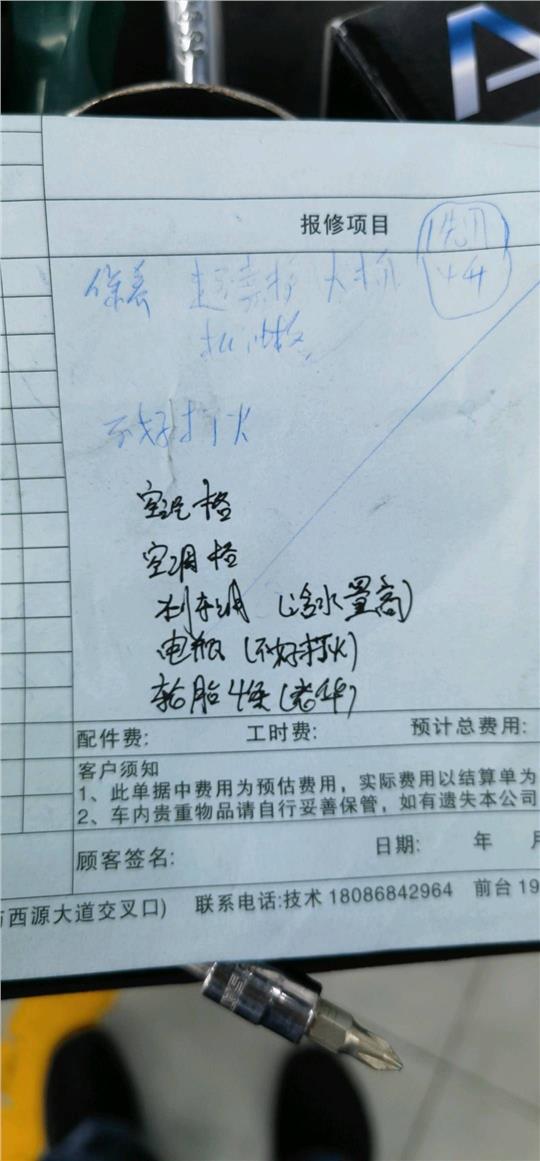 报修项目
保养
不好打火
空汽格
空调格
刹车油 (含水量高)
电瓶 (不好打火)
轮胎4条 (老化)
配件费: 工时费: 预计总费用:
客户须知
1、此单据中费用为预估费用，实际费用以结算单为
2、车内贵重物品请自行妥善保管，如有遗失本公司
顾客签名: 日期: 年 月
与西源大道交叉口) 联系电话:技术 18086842964 前台 19